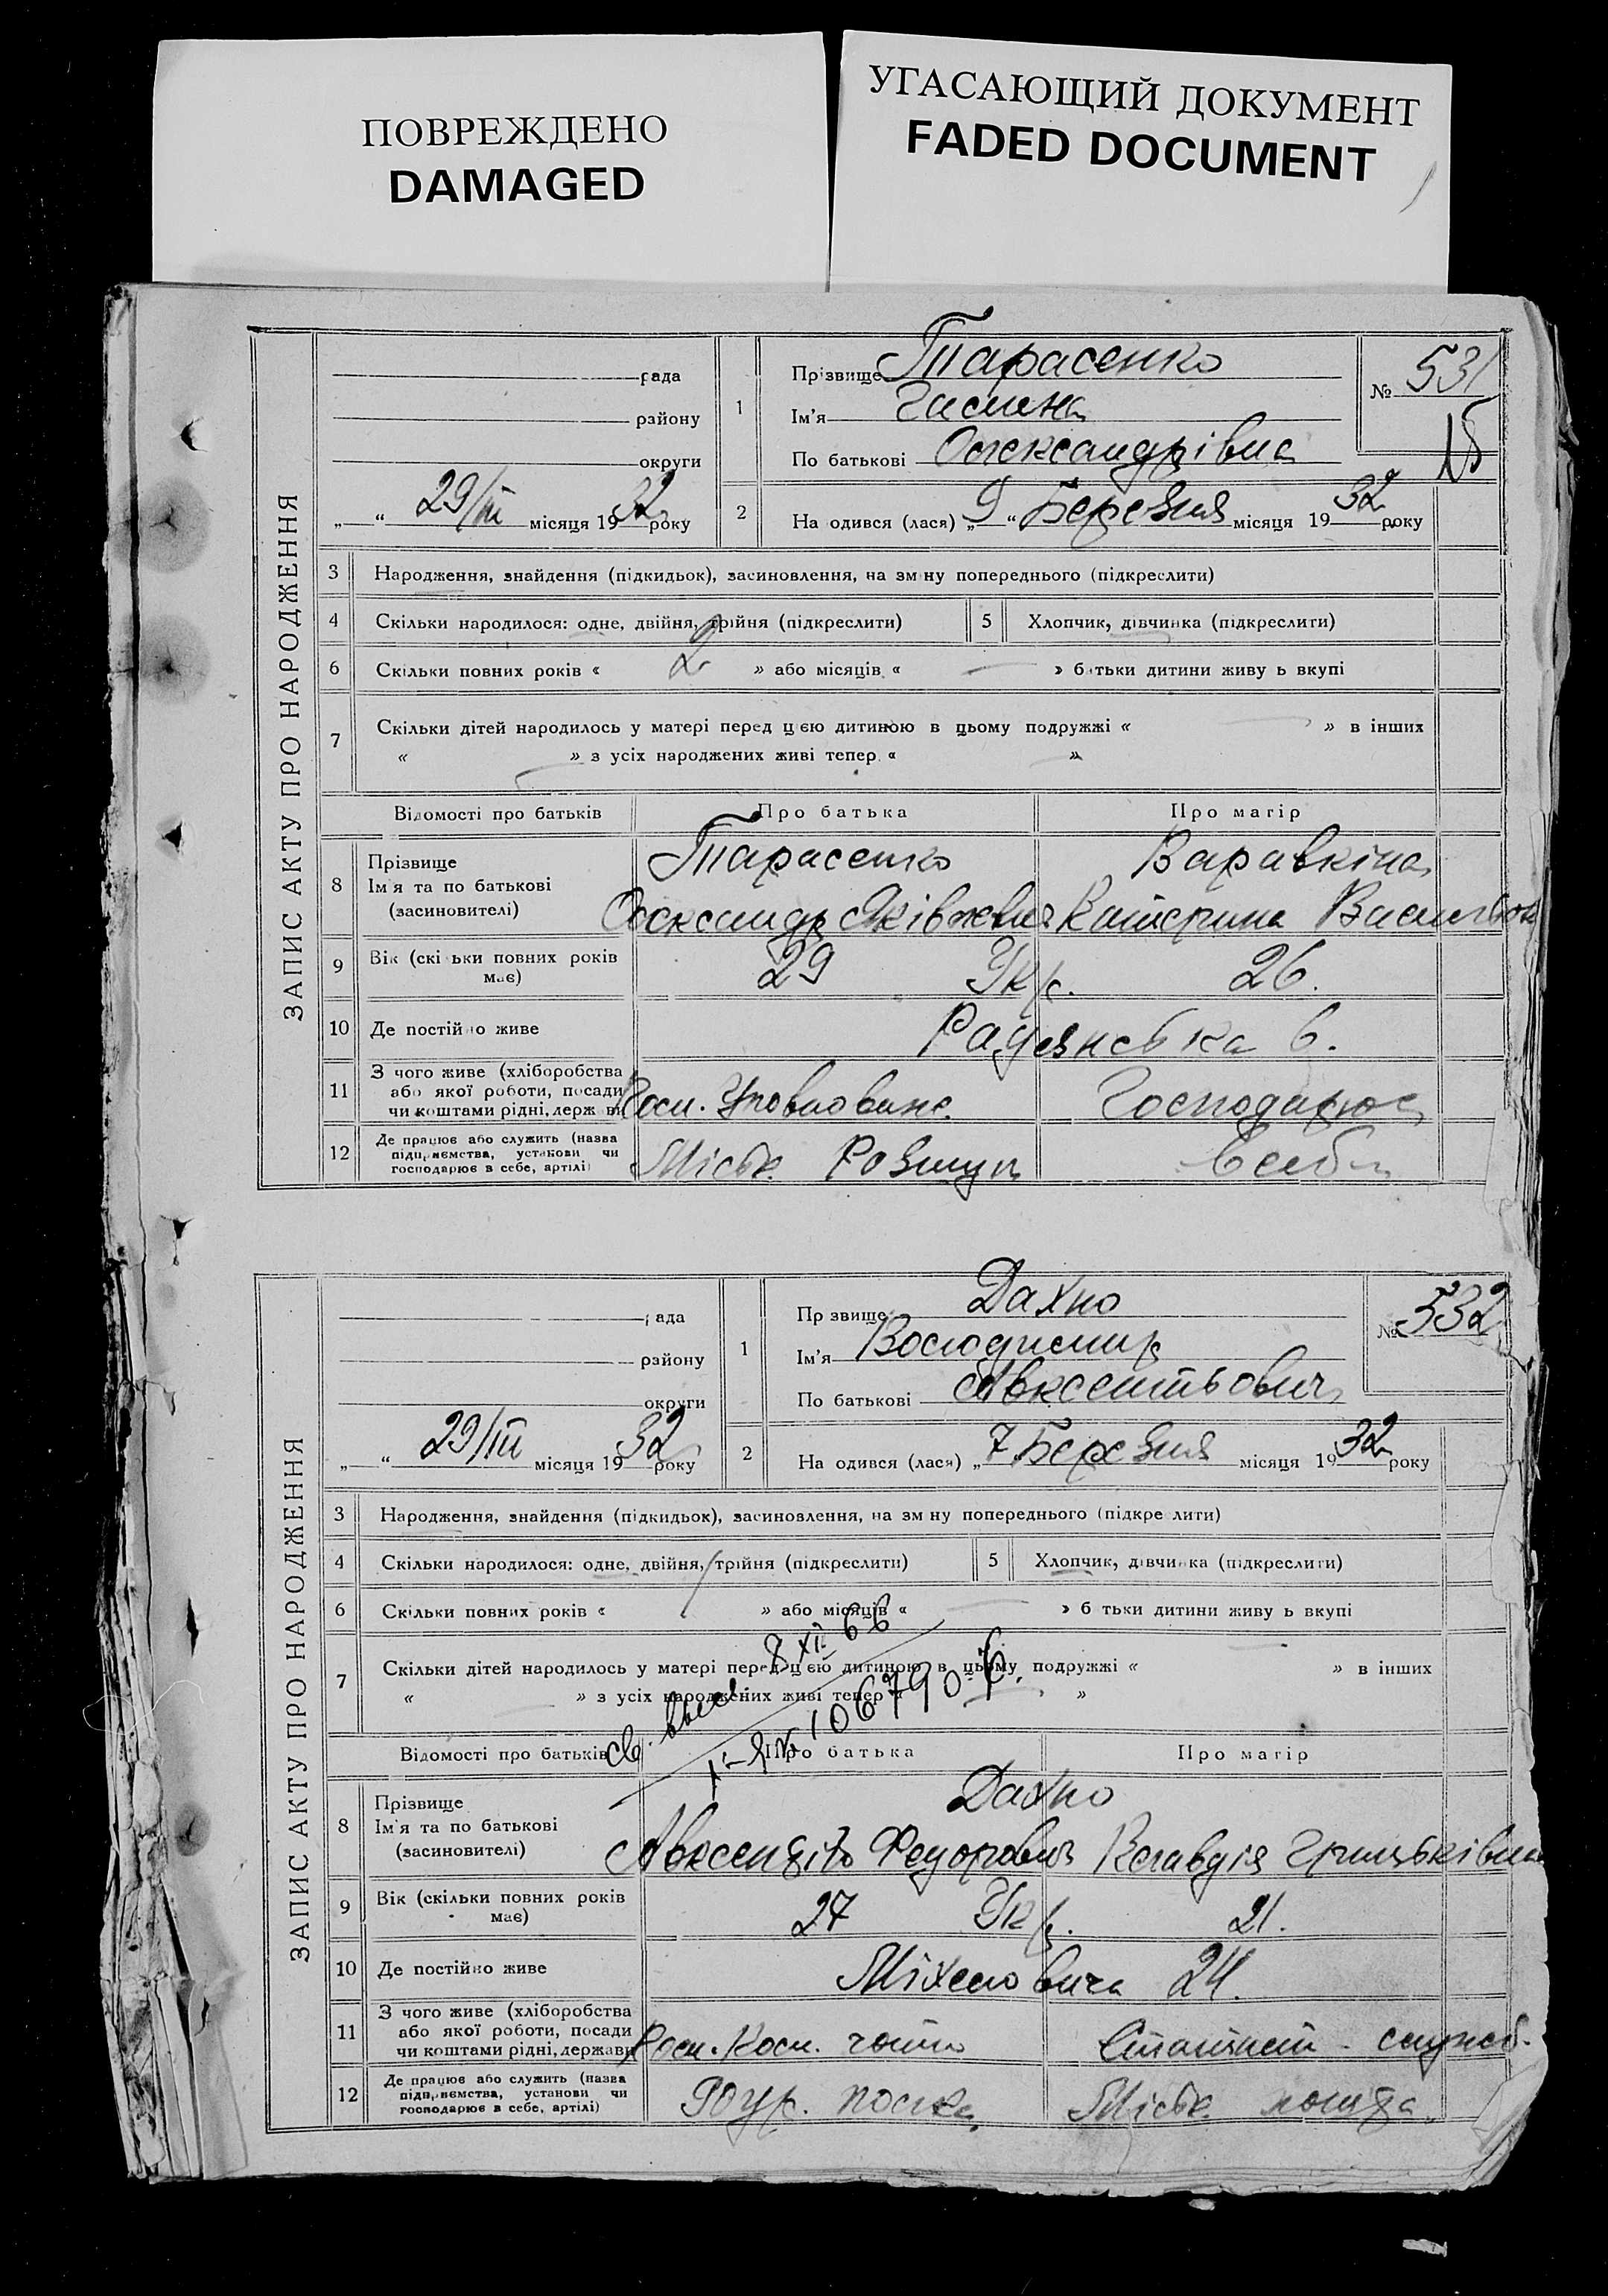 ПОВРЕЖДЕНО
DAMAGED
УГАСАЮЩИЙ ДОКУМЕНТ
FADED DOCUMENT
ЗАПИС АКТУ ПРО НАРОДЖЕННЯ
рада
району
округи
„ “ 29/III місяця 1932 року
1
Прізвище Тарасенко
Ім'я Галина
По батькові Олександрівна
№ 531
2
На одився (лася) „9“ Березня місяця 1932 року
3 Народження, знайдення (підкидьок), засиновлення, на зм ну попереднього (підкреслити)
4 Скільки народилося: одне, двійня, трійня (підкреслити)
5 Хлопчик, дівчинка (підкреслити)
6 Скільки повних років « 2 » або місяців « — » б тьки дитини живу ь вкупі
7 Скільки дітей народилось у матері перед цією дитиною в цьому подружжі « — » в інших
« — » з усіх народжених живі тепер « — »
Відомості про батьків Про батька Про матір
8 Прізвище
Ім'я та по батькові
(засиновителі)
Тарасенко Варавкіна
Олександр Яківлевич Катерина Васильовн
9 Вік (скі ьки повних років має) 29 Укр. 26.
10 Де постійно живе Радянська 6.
11 З чого живе (хліборобства
або якої роботи, посади
чи коштами рідні, держ ви
Уповноваж. Господарює
12 Де працює або служить (назва
підприємства, установи чи
господарює в себе, артілі)
Міськ. Розшук в себе
ЗАПИС АКТУ ПРО НАРОДЖЕННЯ
рада
району
округи
„ “ 29/III місяця 1932 року
1
Пр звище Дахно
Ім'я Володимир
По батькові Авксентьович
№ 532
2
На одився (лася) „7 Березня місяця 1932 року
3 Народження, знайдення (підкидьок), засиновлення, на зм ну попереднього (підкре лити)
4 Скільки народилося: одне, двійня, трійня (підкреслити)
5 Хлопчик, дівчинка (підкреслити)
6 Скільки повних років « 1 » або місяців « — » б тьки дитини живу ь вкупі
7 Скільки дітей народилось у матері перед цією дитиною в цьому подружжі « — » в інших
« — » з усіх народжених живі тепер « — »
8 XII 66
106790
Відомості про батьків Про батька Про матір
8 Прізвище
Ім'я та по батькові
(засиновителі)
Дахно
Авксентій Федорович Клавдія Грицьківна
9 Вік (скільки повних років має) 27 Укр. 21.
10 Де постійно живе 24.
11 З чого живе (хліборобства
або якої роботи, посади
чи коштами рідні, держави
служб.
12 Де працює або служить (назва
підприємства, установи чи
господарює в себе, артілі)
Міськ. пошта